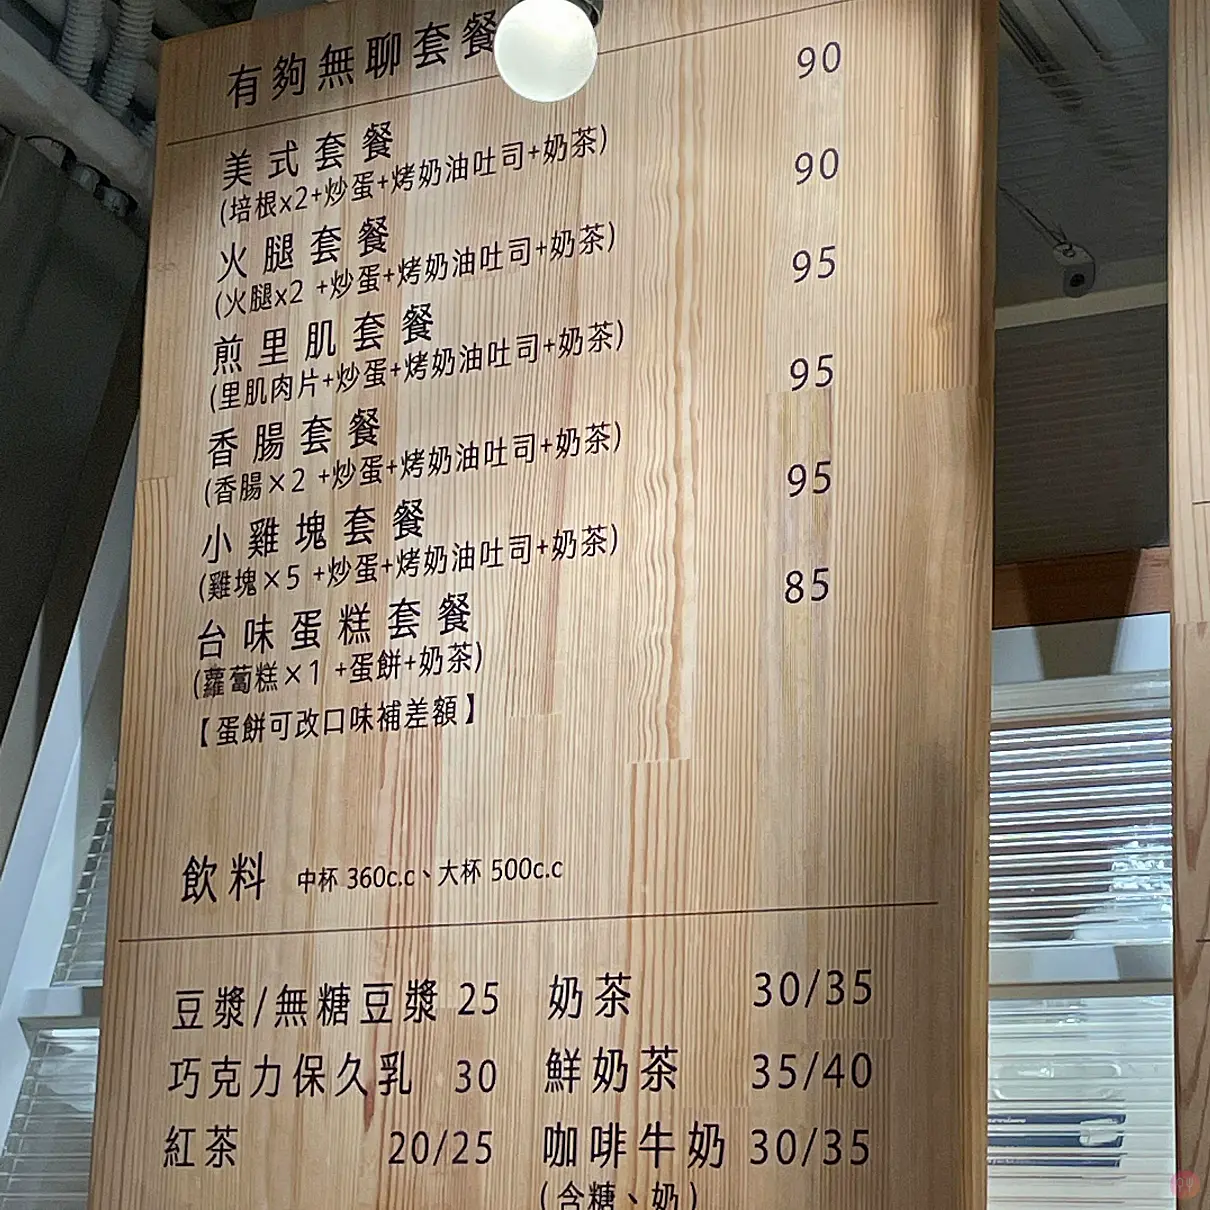 有夠無聊套餐
美式套餐 90
(培根x2+炒蛋+烤奶油吐司+奶茶)
火腿套餐 90
(火腿x2 +炒蛋+烤奶油吐司+奶茶)
煎里肌套餐 95
(里肌肉片+炒蛋+烤奶油吐司+奶茶)
香腸套餐 95
(香腸×2 +炒蛋+烤奶油吐司+奶茶)
小雞塊套餐 95
(雞塊×5 +炒蛋+烤奶油吐司+奶茶)
台味蛋糕套餐 85
(蘿蔔糕×1 +蛋餅+奶茶)
【蛋餅可改口味補差額】
飲料 中杯 360c.c、大杯 500c.c
豆漿/無糖豆漿 25 奶茶 30/35
巧克力保久乳 30 鮮奶茶 35/40
紅茶 20/25 咖啡牛奶 30/35
(含糖、奶)